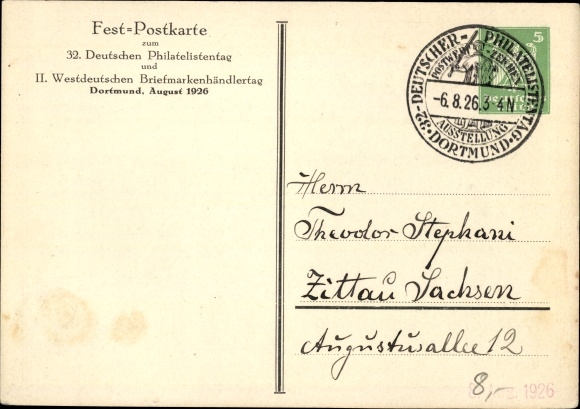 Fest=Postkarte
zum
32. Deutschen Philatelistentag
und
II. Westdeutschen Briefmarkenhändlertag
Dortmund, August 1926
5
32. DEUTSCHER PHILATELISTENTAG
POSTWERTZEICHEN
-6.8.26.3-4N
AUSSTELLUNG
DORTMUND
Herrn
Theodor Stephani
Zittau Sachsen
Augustusallee 12
8,-
1926